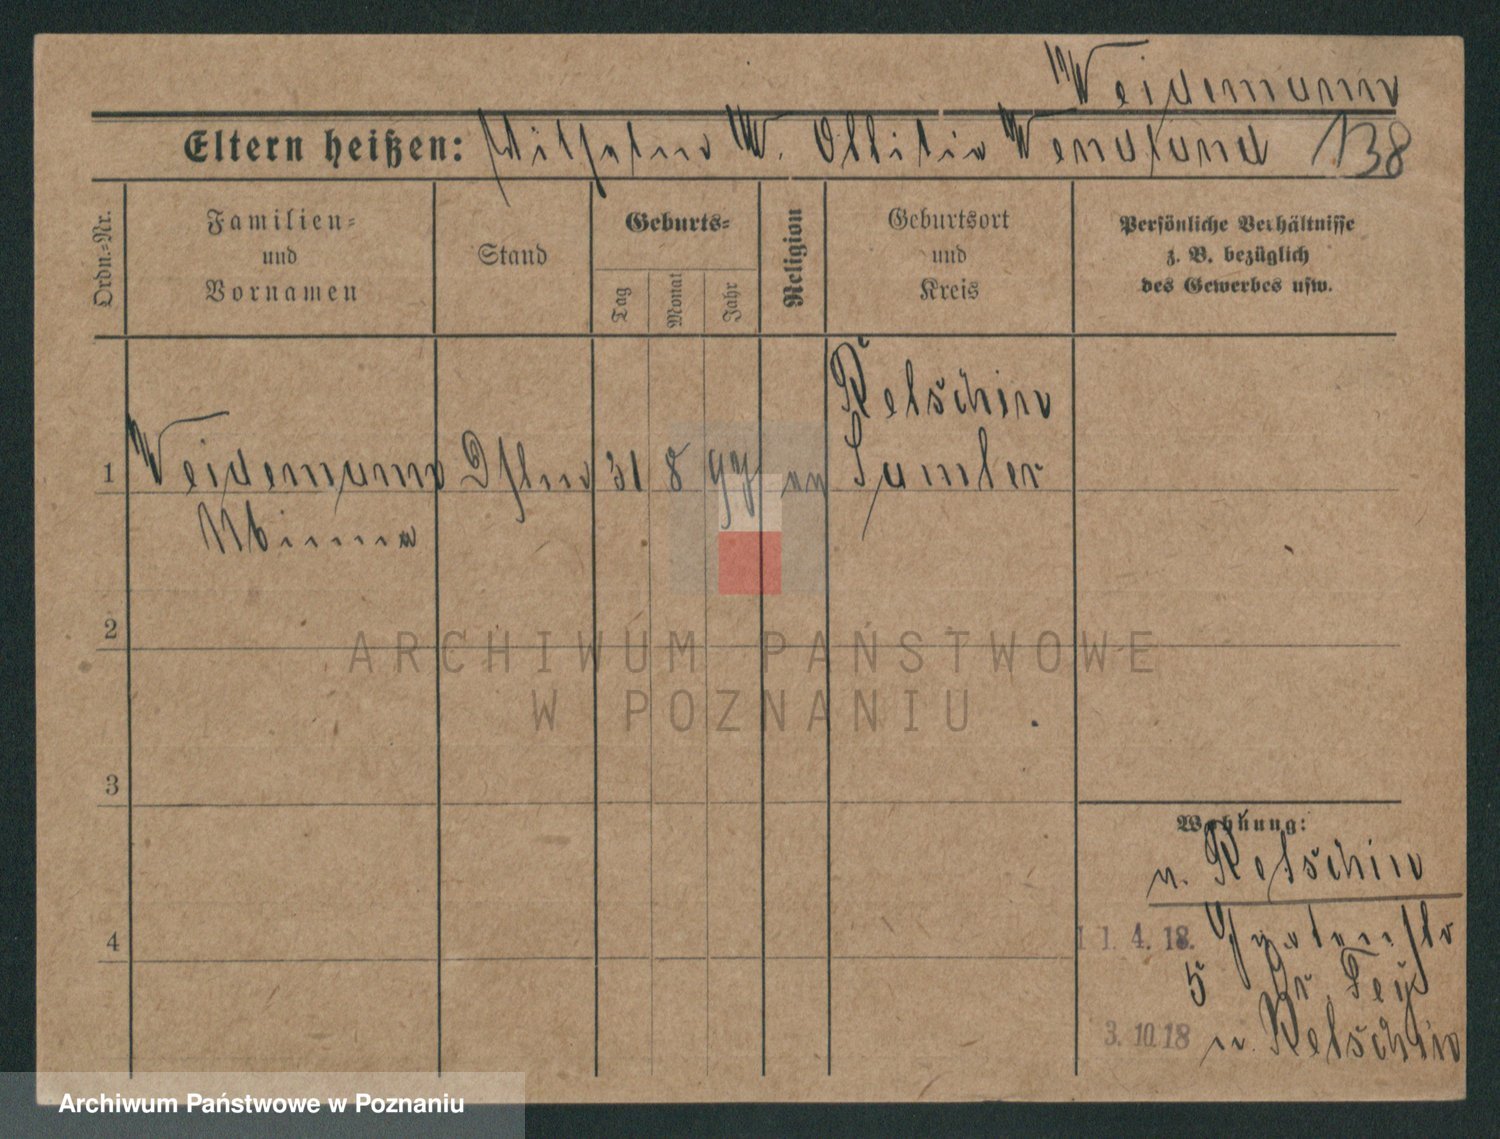 Weidemann
Eltern heißen: Wilhelm W. Ottilie Wendland 138
Ordn.-Nr.
Familien-
und
Vornamen
Stand
Geburts-
Tag
Monat
Jahr
Religion
Geburtsort
und
Kreis
Persönliche Verhältnisse
z. B. bezüglich
des Gewerbes usw.
Retschin
1 Weidemann 31 8 99 Samter
Minna
2
3
4
ARCHIWUM PAŃSTWOWE
W POZNANIU
Wohnung:
n. Retschin
11. 4. 18.
5
3. 10. 18 n. Retschin
Archiwum Państwowe w Poznaniu